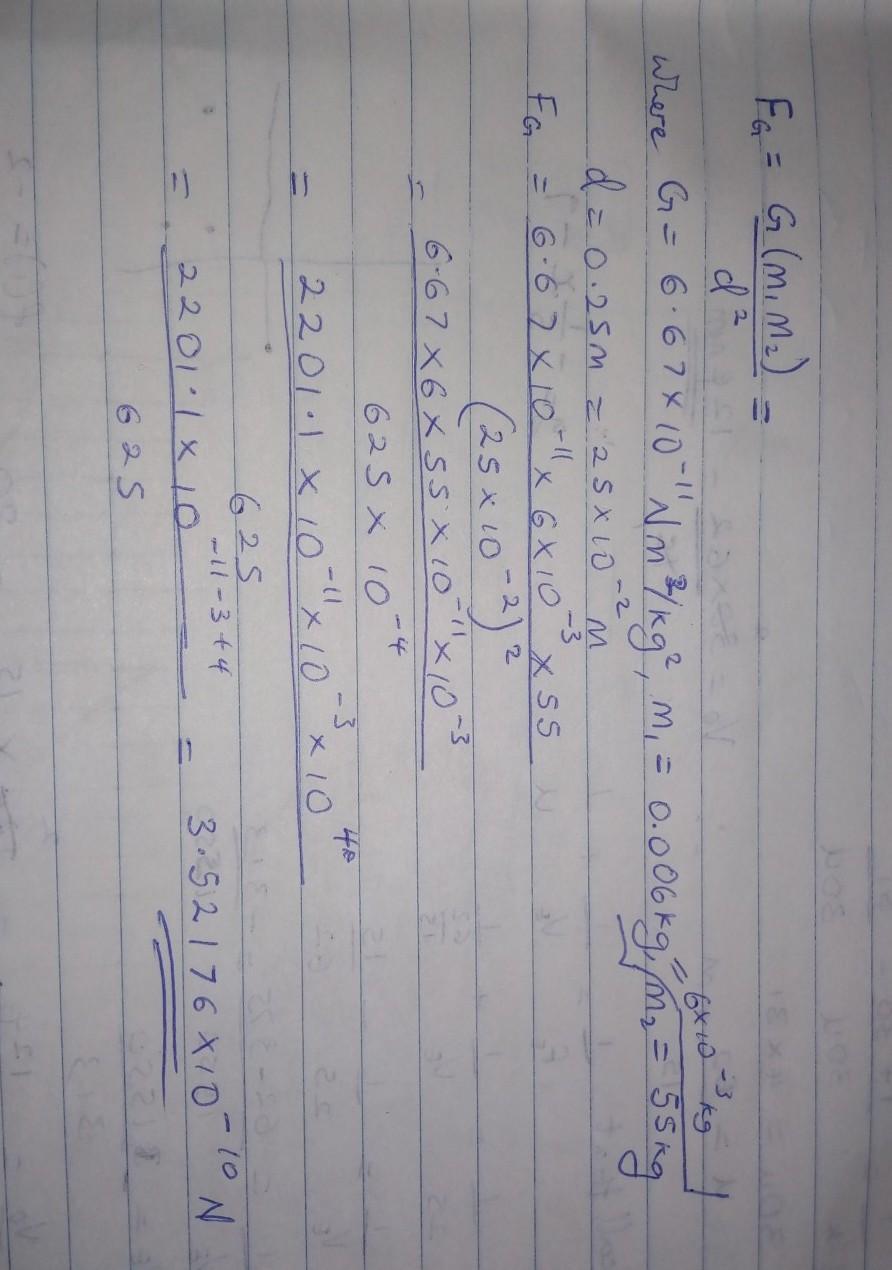 F_G = G(m₁m₂) =
d²
where G = 6.67 × 10⁻¹¹ Nm²/kg², m₁ = 0.006kg, = 6×10⁻³ kg m₂ = 55kg
d = 0.25m = 25×10⁻² m
F_G = 6.67 × 10⁻¹¹ × 6×10⁻³ × 55
(25×10⁻²)²
= 6.67 × 6 × 55 × 10⁻¹¹ × 10⁻³
625 × 10⁻⁴
= 2201.1 × 10⁻¹¹ × 10⁻³ × 10⁴
625
= 2201.1 × 10⁻¹¹⁻³⁺⁴ = 3.52176 × 10⁻¹⁰ N
625